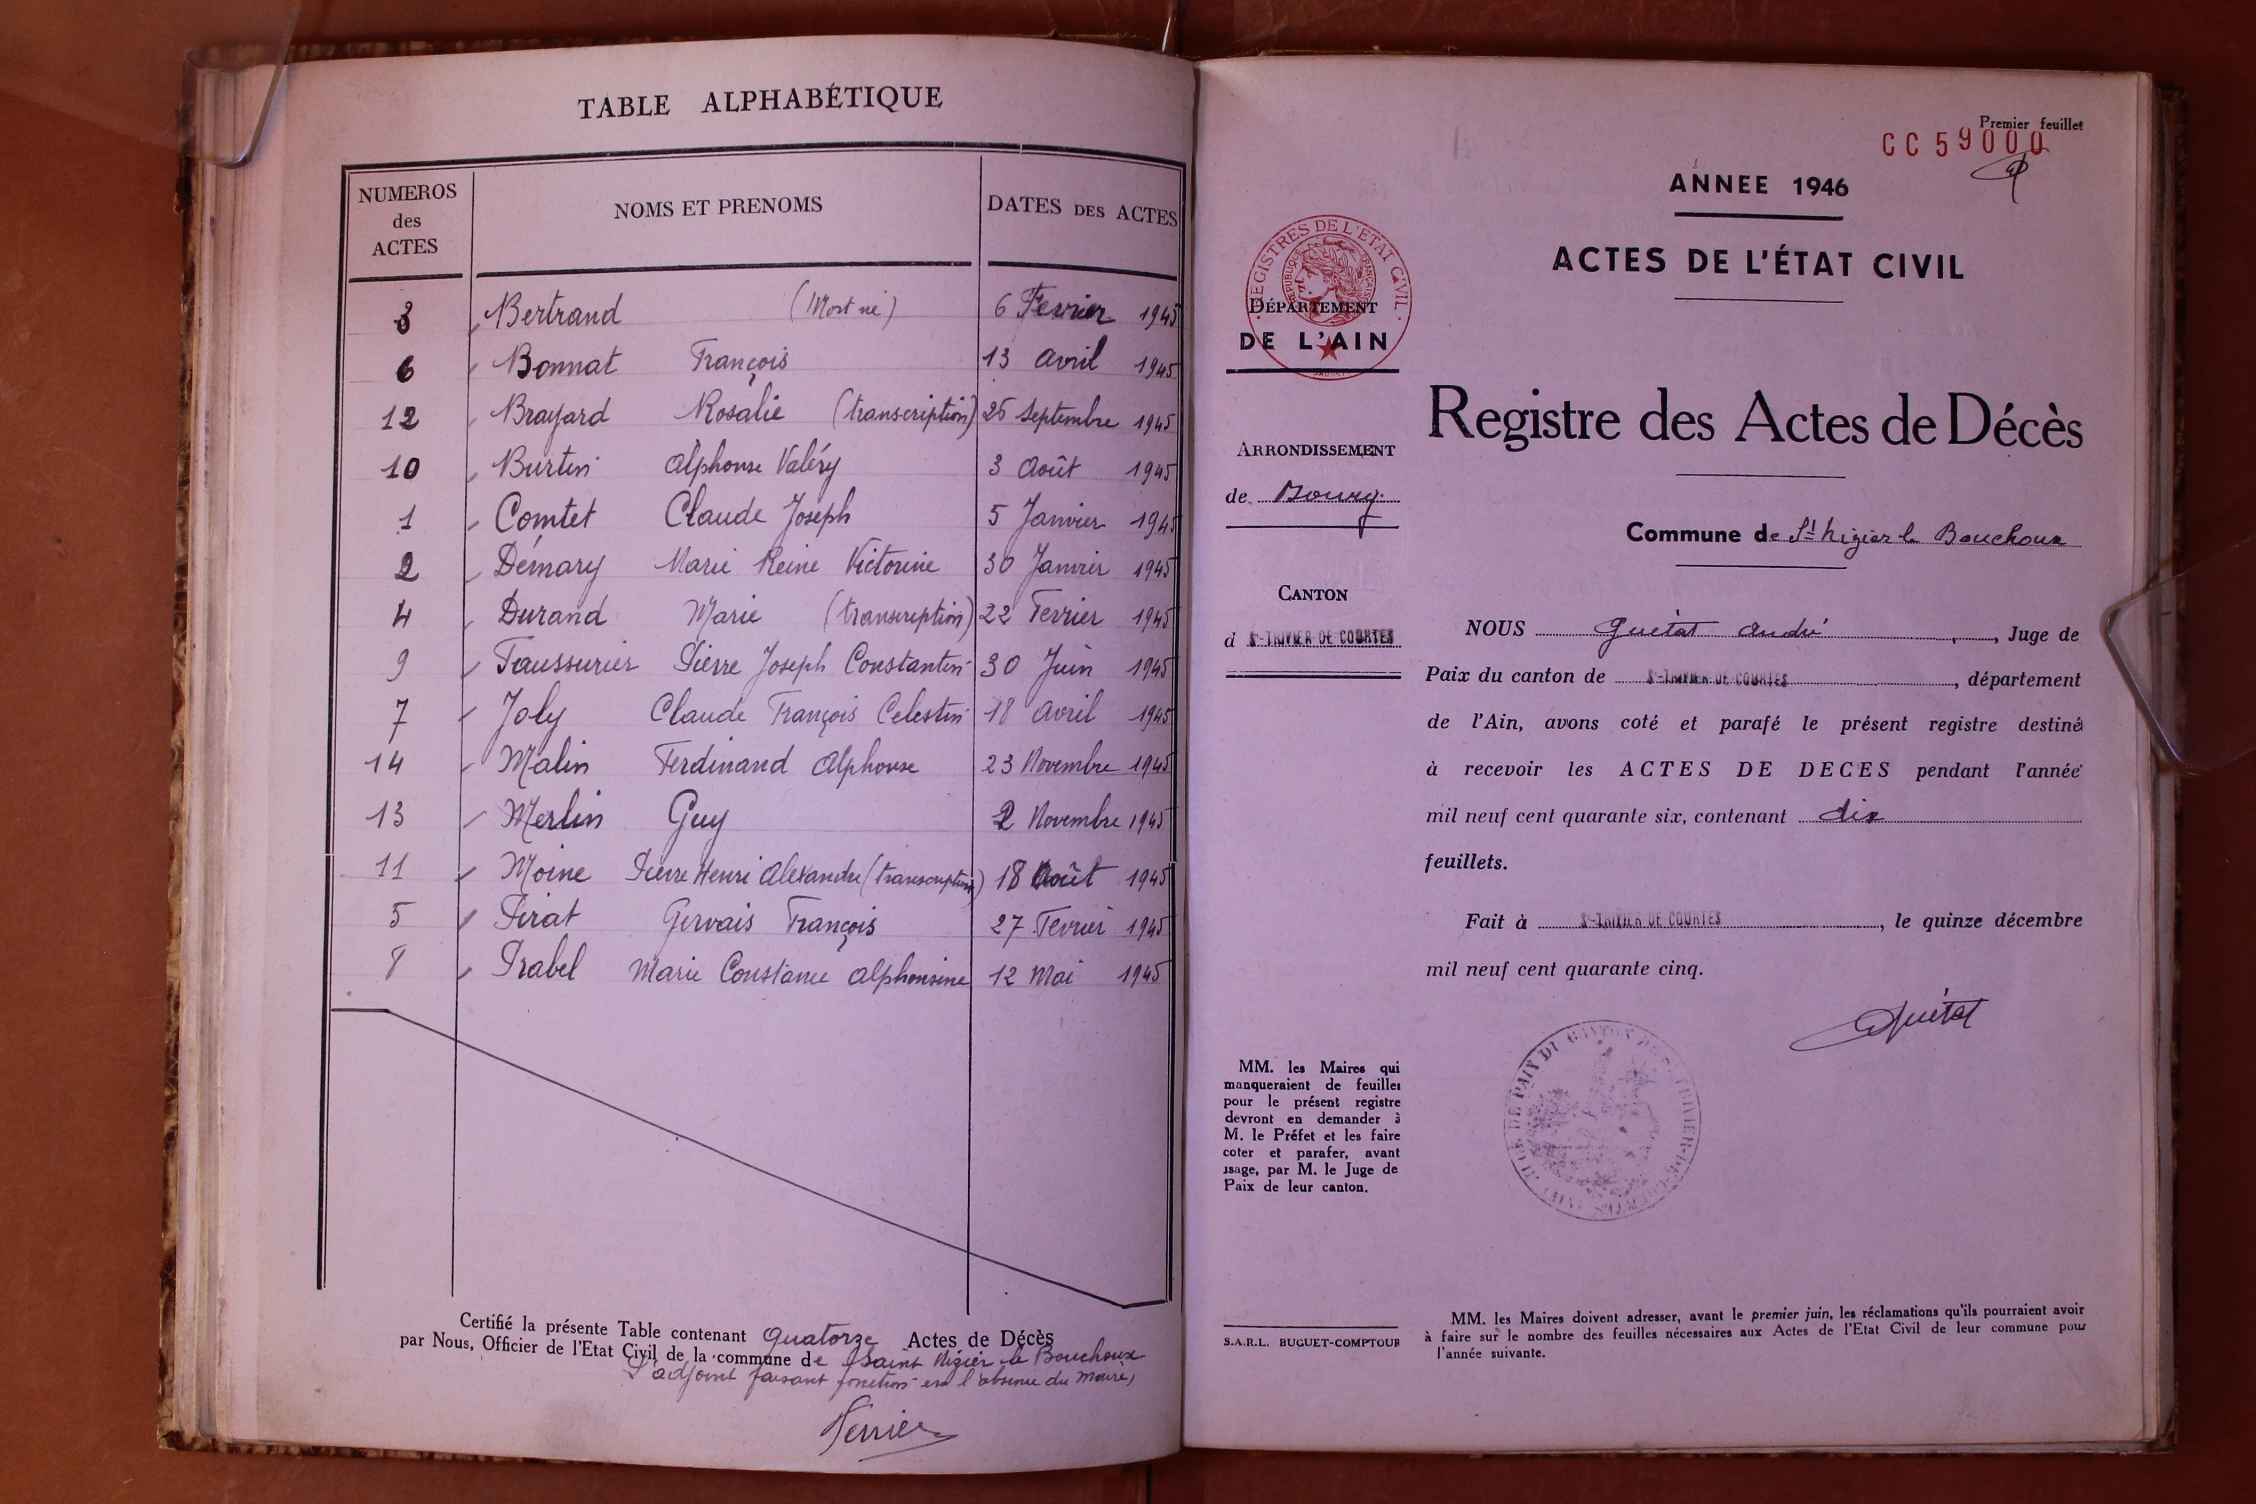 TABLE ALPHABÉTIQUE
NUMEROS des ACTES NOMS ET PRENOMS DATES DES ACTES
3 Bertrand (Mort né) 6 Fevrier 1945
6 Bonnat François 13 avril 1945
12 Brayard Rosalie (transcription) 25 septembre 1945
10 Burtin Alphonse Valéry 3 Août 1945
1 Comtet Claude Joseph 5 Janvier 1945
2 Démary Marie Reine Victorine 30 Janvier 1945
4 Durand Marie (transcription) 22 Fevrier 1945
9 Faussurier Pierre Joseph Constantin 30 Juin 1945
7 Joly Claude François Celestin 18 avril 1945
14 Malin Ferdinand Alphonse 23 Novembre 1945
13 Merlin Guy 2 Novembre 1945
11 Moine Pierre Henri Alexandre (transcription) 18 Août 1945
5 Pirat Gervais François 27 Fevrier 1945
8 Prabel Marie Constance Alphonsine 12 Mai 1945
Certifié la présente Table contenant Quatorze Actes de Décès
par Nous, Officier de l'Etat Civil de la commune de Saint Nizier le Bouchoux
L'adjoint faisant fonction en l'absence du maire,
Perrier
Premier feuillet
CC 59000
ANNEE 1946
ACTES DE L'ÉTAT CIVIL
REGISTRES DE L'ETAT CIVIL
RÉPUBLIQUE FRANÇAISE
DÉPARTEMENT
DE L'AIN
Registre des Actes de Décès
ARRONDISSEMENT
de Bourg
Commune de St Nizier le Bouchoux
CANTON
d St-TRIVIER DE COURTES
NOUS Guétat André, Juge de
Paix du canton de St-TRIVIER DE COURTES, département
de l'Ain, avons coté et parafé le présent registre destiné
à recevoir les ACTES DE DECES pendant l'année
mil neuf cent quarante six, contenant dix
feuillets.
Fait à St-TRIVIER DE COURTES, le quinze décembre
mil neuf cent quarante cinq.
Guétat
JUGE DE PAIX DU CANTON DE St TRIVIER-DE-COURTES (AIN)
MM. les Maires qui
manqueraient de feuilles
pour le présent registre
devront en demander à
M. le Préfet et les faire
coter et parafer, avant
usage, par M. le Juge de
Paix de leur canton.
S.A.R.L. BUGUET-COMPTOUR
MM. les Maires doivent adresser, avant le premier juin, les réclamations qu'ils pourraient avoir
à faire sur le nombre des feuilles nécessaires aux Actes de l'Etat Civil de leur commune pour
l'année suivante.